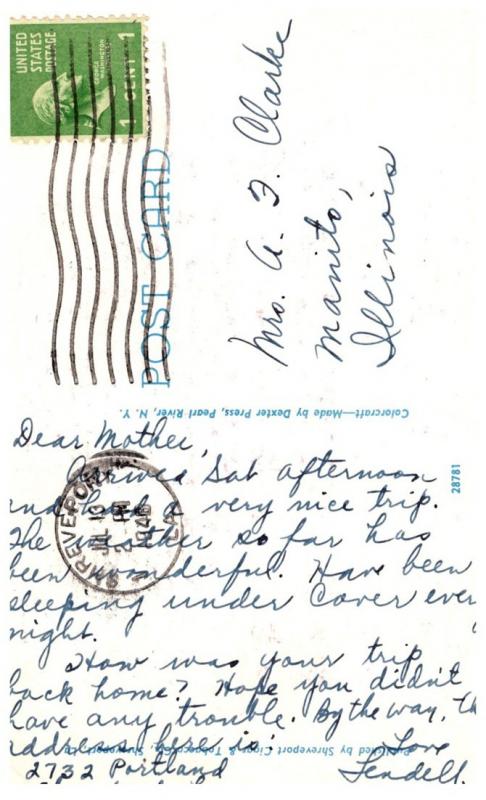 UNITED
STATES
POSTAGE
GEORGE
WASHINGTON
1 CENT 1
POST CARD
Mrs. A. F. Clarke
Manito,
Illinois
Colorcraft—Made by Dexter Press, Pearl River, N. Y.
28781
SHREVEPORT
2 PM
LA
Dear Mother,
Arrived Sat afternoon
and had a very nice trip.
The weather so far has
been wonderful. Have been
sleeping under cover ever
night.
How was your trip
back home? Hope you didn't
have any trouble. By the way, th
address here is:
2732 Portland
Love
Lendell.
Published by Shreveport Cigar & Tobacco Co., Shreveport